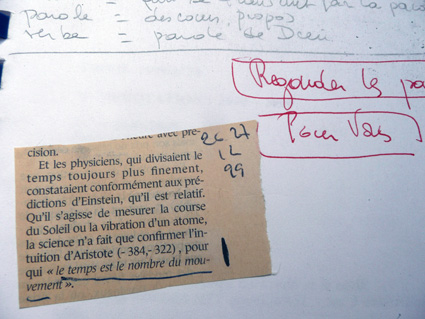 parole = discours, propos
verbe = parole de Dieu
Regarder les
Pour Vous
avec pré-
cision.
Et les physiciens, qui divisaient le
temps toujours plus finement,
constataient conformément aux pré-
dictions d'Einstein, qu'il est relatif.
Qu'il s'agisse de mesurer la course
du Soleil ou la vibration d'un atome,
la science n'a fait que confirmer l'in-
tuition d'Aristote (-384,-322), pour
qui « le temps est le nombre du mou-
vement ».
26 27
12
99